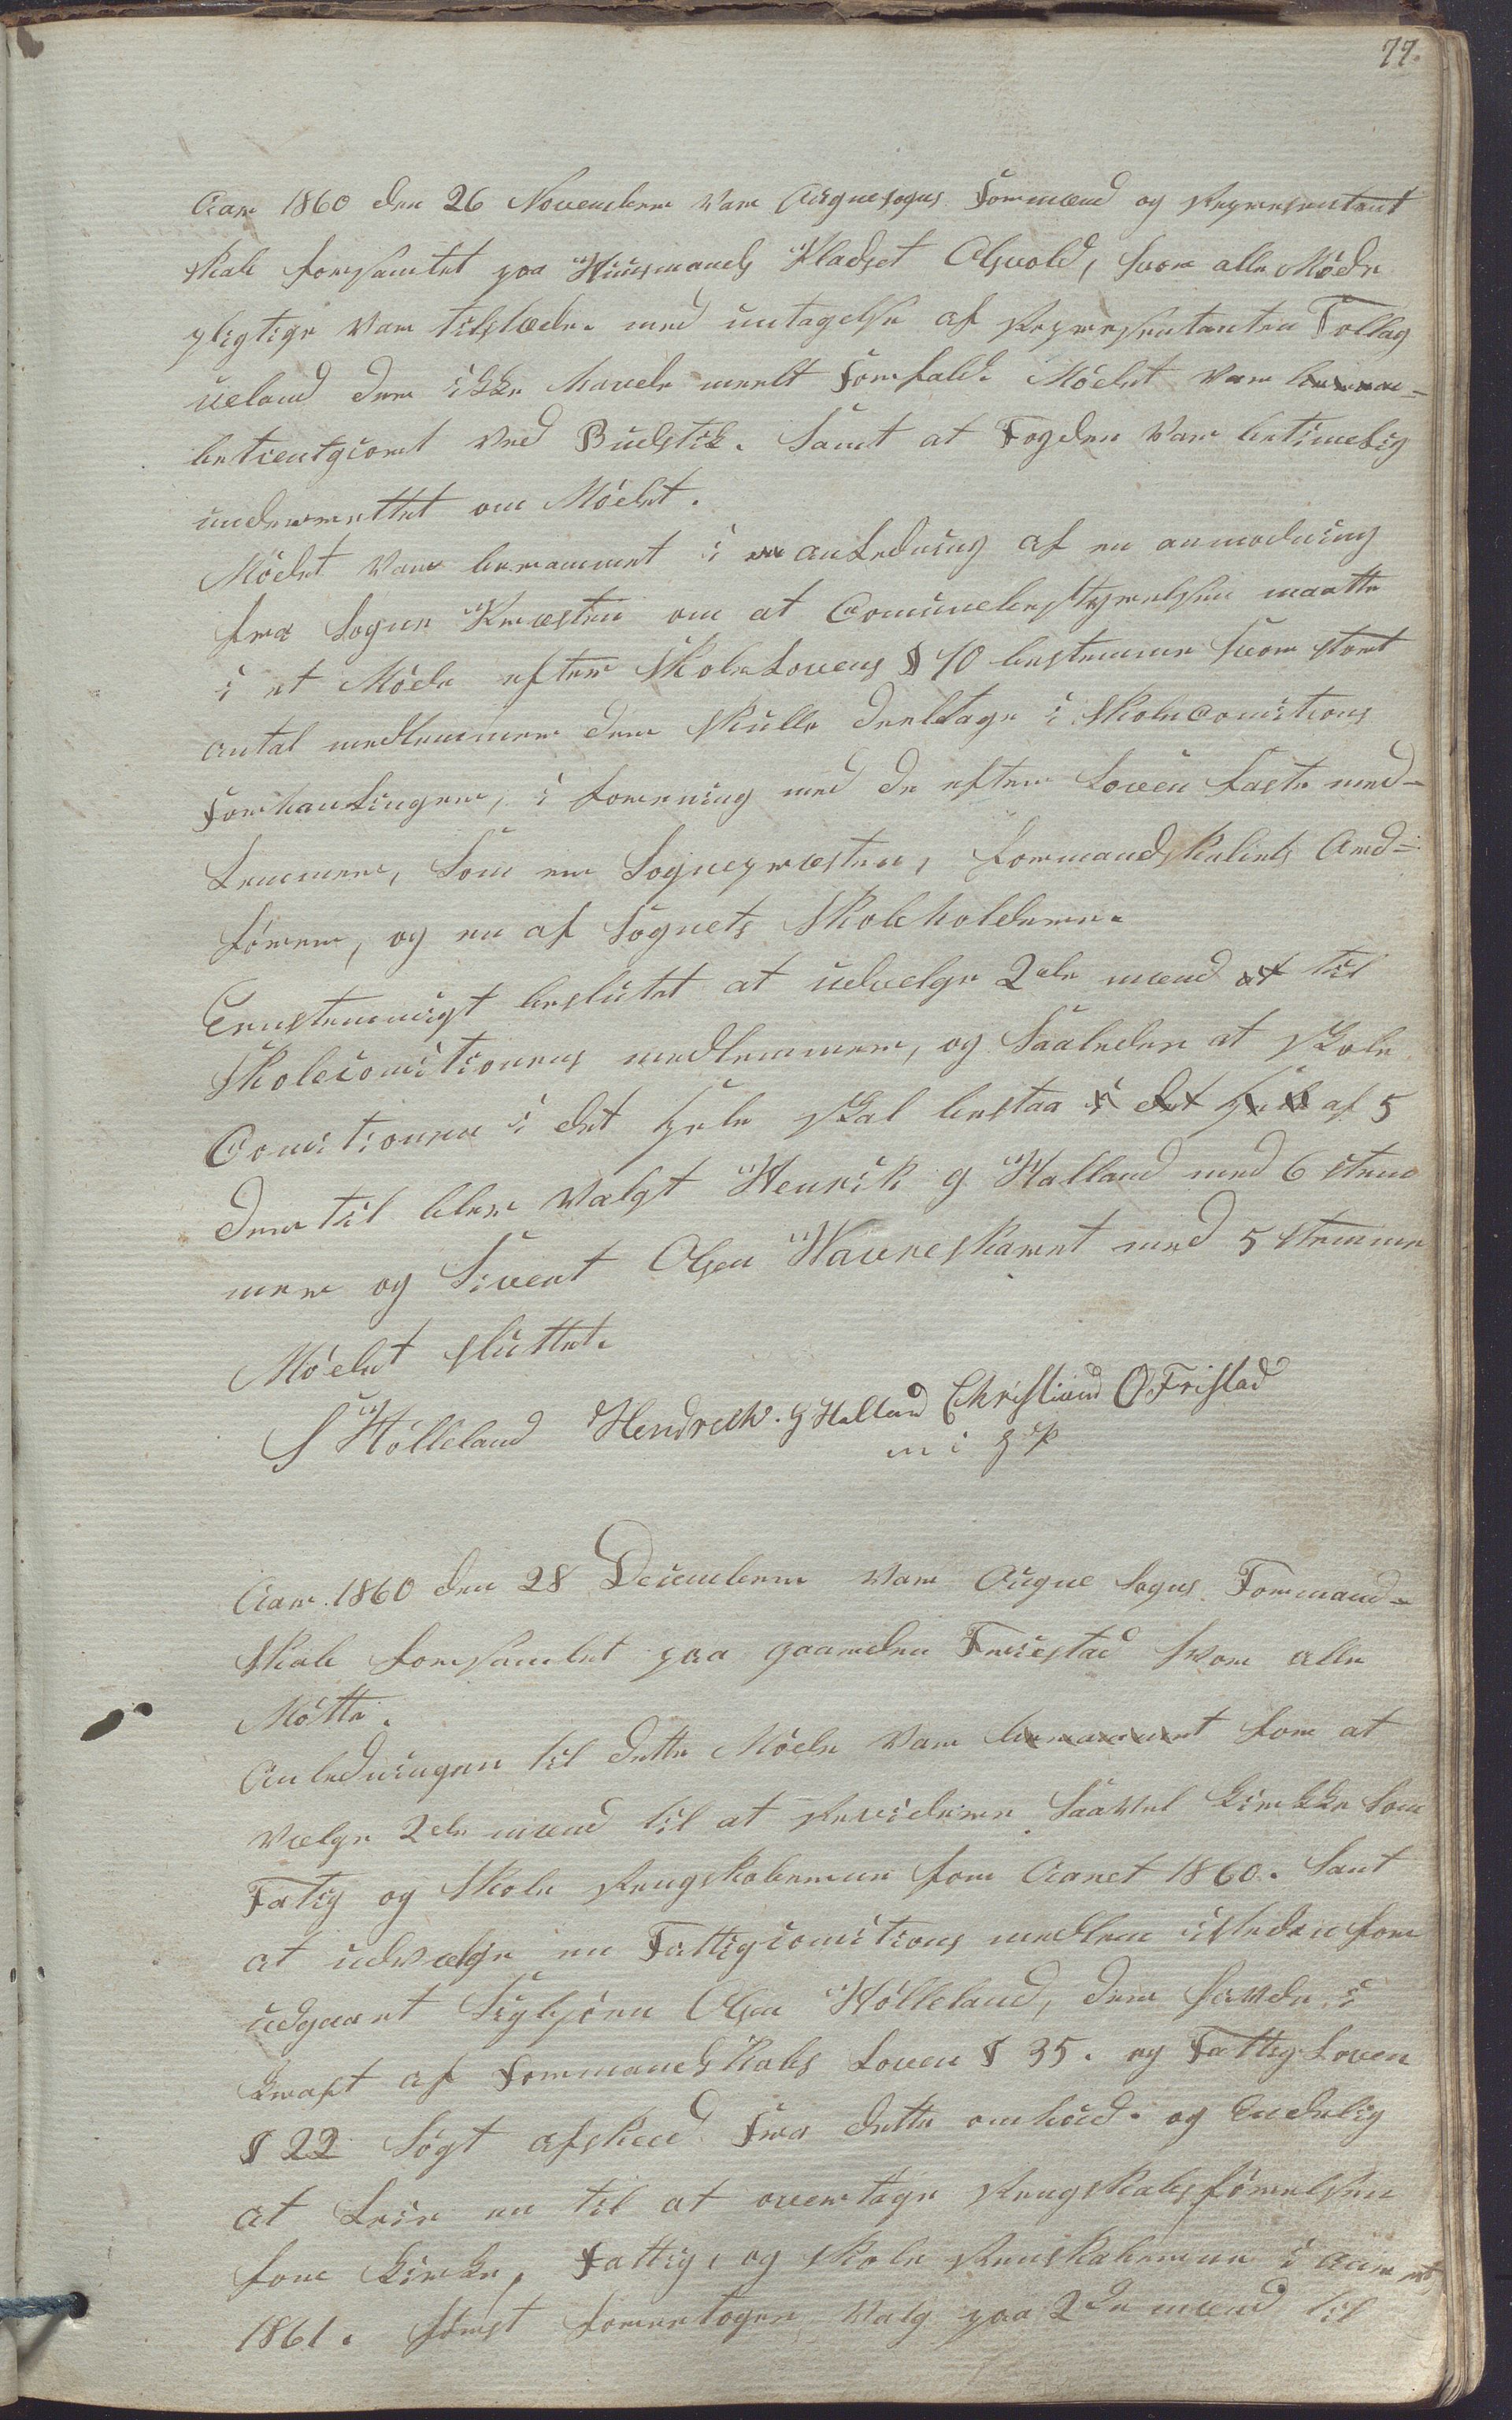 77.
Aar 1860 den 26 November var Augnesogns Formænd og Representant
skab forsamlet paa Huusmands Pladset Alsvold, hvor alle Møde
pligtige var tilstæde. med untagelse af Representanten Tollag
ueland der ikke havde meelt Forfald. Mödet var beram-
betientgiort ved Budstik. Samt at Fogden var betimelig
underrettet om Mödet.
Mödet var berammet i en anledning af en anmodning
fra Sogne Præsten om at Comunebestyrelsen maatte
i et Möde efter Skole Lovens § 40 bestemme hvor stort
antal medlemmer der skulle deeltage i Skolecomitions
Forhanlinger, i forening med de efter Loven faste med-
lemmer, som er Sognepræsten, formandskabets Ord-
förer, og en af Sognets Skoleholdere.
Eenstemmigt beslutet at udvelge 2de mænd at til
Skolecomitionens medlemmer, og Saaledes at skole
Comitionen i det hele skal bestaa i det hele af 5
der til blev Valgt Henrik G Halland med 6 stem
mer og Sivert Olsen Haureskaret med 5 stemme
Mödet sluttet.
S Hölleland Hendrech. G Halland Christiand O Fristad
m i P
Aar. 1860 den 28 December var Augne Sogns Formand-
skab forsamlet paa gaarden Fristad hvor alle
Mötte.
Anledningen til dette Möde var berammet for at
Vælge 2de mænd til at Revidere Saavel Kirkke som
Fatig og Skole Rengskaberne for Aaret 1860. Samt
at udvælge en Fattigcomitions medlem isteden for
udgaaet Sigbjörn Olsen Hölleland, der havde i
kraft af Formandskabs Loven § 35. og Fattig Loven
§ 22 Sögt afsked fra dette ombud. og Endelig
at Leie en til at overtage Rengskabsförelsen
for Kirke, Fattig, og skole Renskaberne i Aaret
1861. först foretages Valg paa 2de mænd til